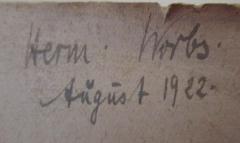 Herm. Worbs.
August 1922.